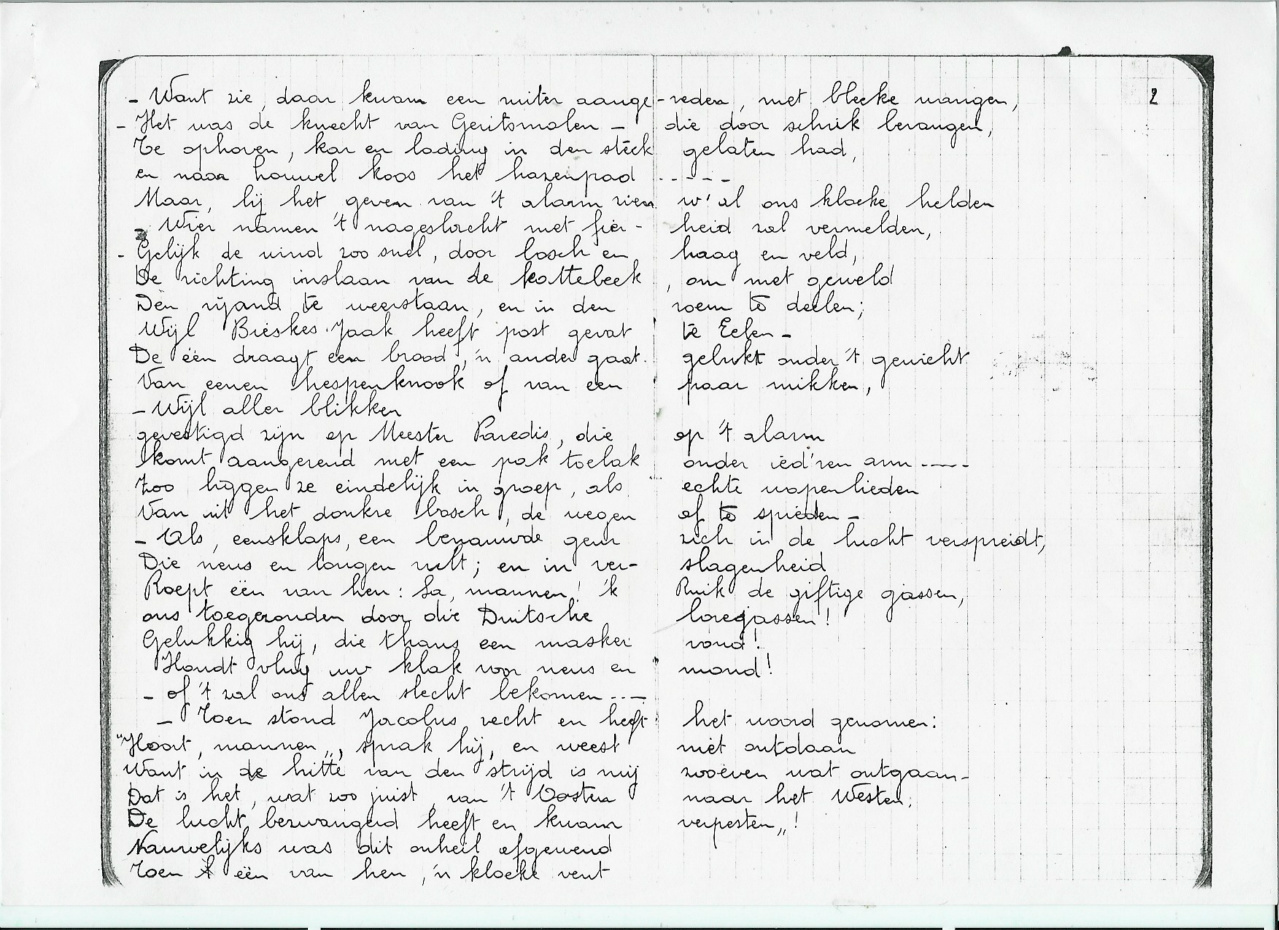 2
- Want zie, daar kwam een ruiter aange-reden, met bleeke wangen,
- Het was de knecht van Geritsmolen - die door schrik bevangen,
Te ophoven, kar en lading in den steek gelaten had,
en naar houwel koos het hazenpad - - - - -
Maar, bij het geven van 't alarm zien w'al ons kloeke helden
- Wier namen 't nageslacht met fier-heid zal vermelden,
- Gelijk de wind zoo snel, door bosch en haag en veld,
De richting inslaan van de kattebeek, om met geweld
Dèn vijand te weerstaan, en in den roem te deelen;
Wijl Bieskes Jaak heeft post gevat te Eelen -
De één draagt een brood, 'n ander gaat gebukt onder 't gewicht
Van eenen hespenknook of van een paar mikken,
- Wijl aller blikken
gevestigd zijn op Meester Paredis, die op 't alarm
komt aangerend met een pak toebak onder ied'ren arm - - - -
Zoo liggen ze eindelijk in groep, als echte wapenlieden
Van uit het donkre bosch, de wegen af te spieden -
- Als, eensklaps, een benauwde geur zich in de lucht verspreidt,
Die neus en longen vult; en in ver-slagenheid
Roept één van hen: Sa, mannen! 'k Ruik de giftige gassen,
ons toegezonden door die Duitsche loregassen!
Gelukkig hij, die thans een masker vond!
Houdt vlug uw klak voor neus en mond!
- of 't zal ons allen slecht bekomen - - -
- Toen stond Jacobus recht en heeft het woord genomen:
"Hoort, mannen", sprak hij, en weest niet ontdaan
Want in de hitte van den strijd is mij zooeven wat ontgaan -
Dat is het, wat zoo juist, van 't Oosten naar het Westen,
De lucht bezwangerd heeft en kwam verpesten"!
Nauwelijks was dit onheil afgewend
Toen één van hen, 'n kloeke vent